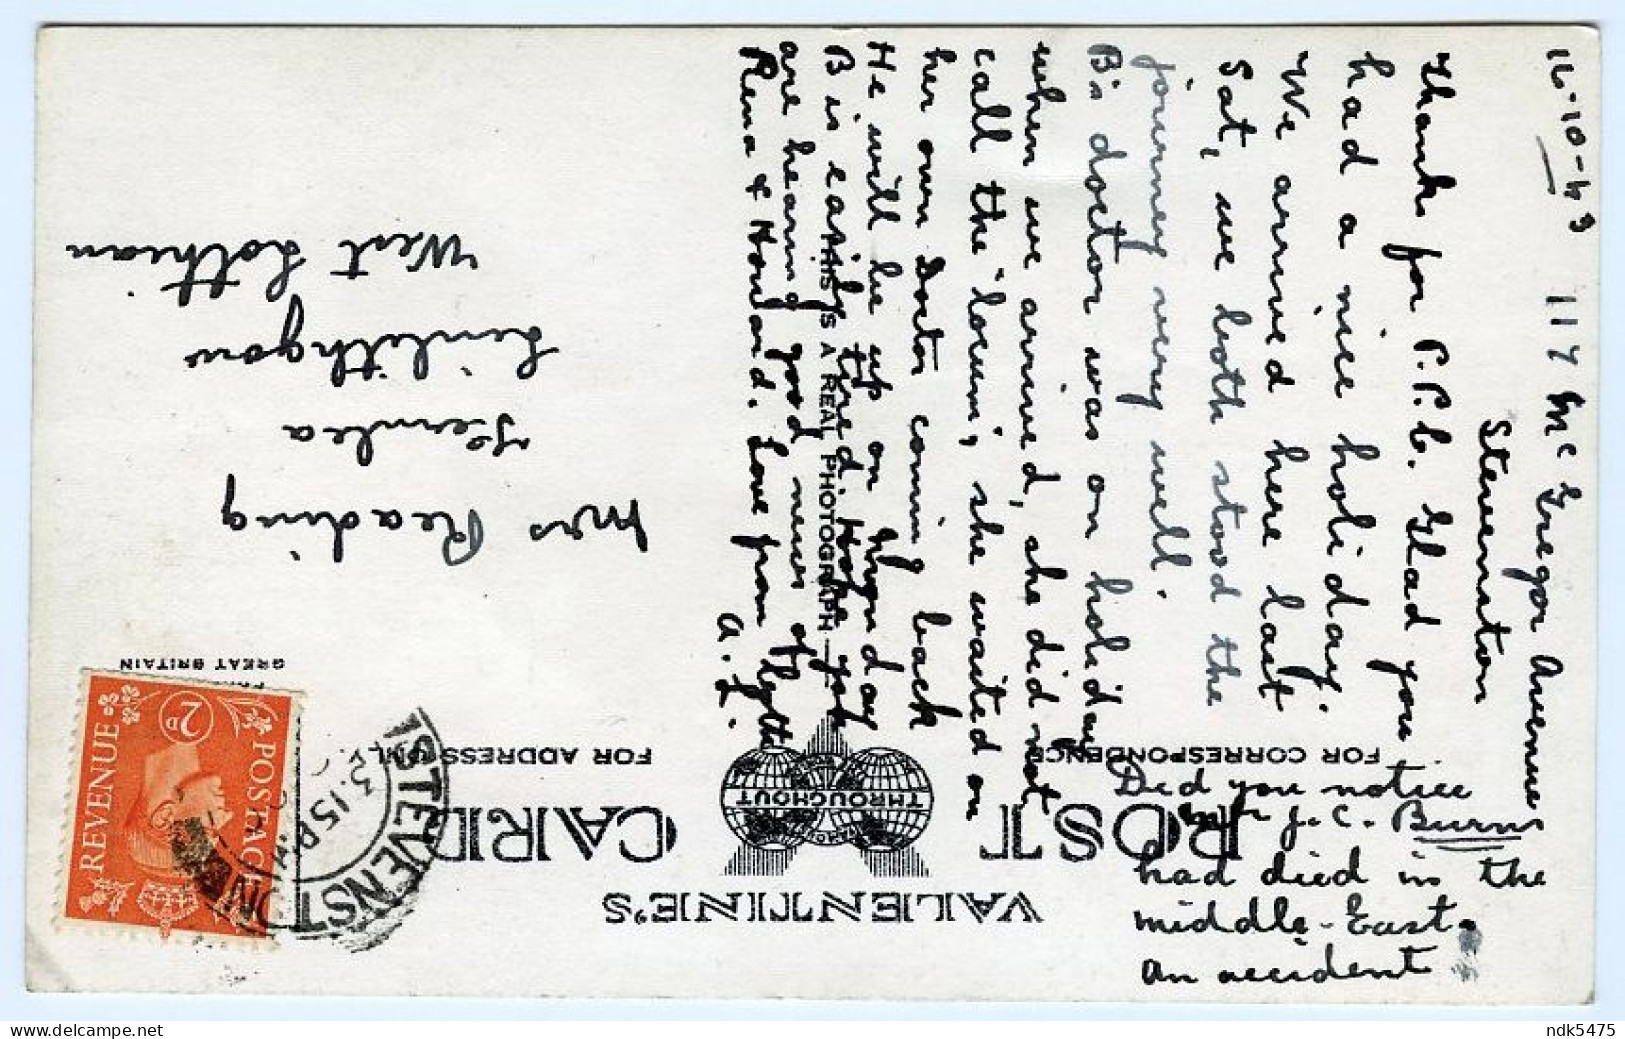 16-10-43 117 McGregor Avenue
Stevenston
Thanks for P.P.C. Glad you
had a nice holiday.
We arrived here last
Sat, we both stood the
journey very well.
B's doctor was on holiday
when we arrived, she did not
call the "locum", she waited on
her own Doctor coming back
He will be up on
B is easily tired. Hope you
are hearing good news of
Rena & Howard. Love from
A. L.
Did you notice
J. C. Burns
had died in the
Middle-East.
An accident
VALENTINE'S
POST CARD
THROUGHOUT
FOR CORRESPONDENCE
FOR ADDRESS ONLY
THIS IS A REAL PHOTOGRAPH
GREAT BRITAIN
POSTAGE
REVENUE
2D
STEVENSTON
3.15 PM
Mrs Reading
Fernlea
Linlithgow
West Lothian
ndk5475